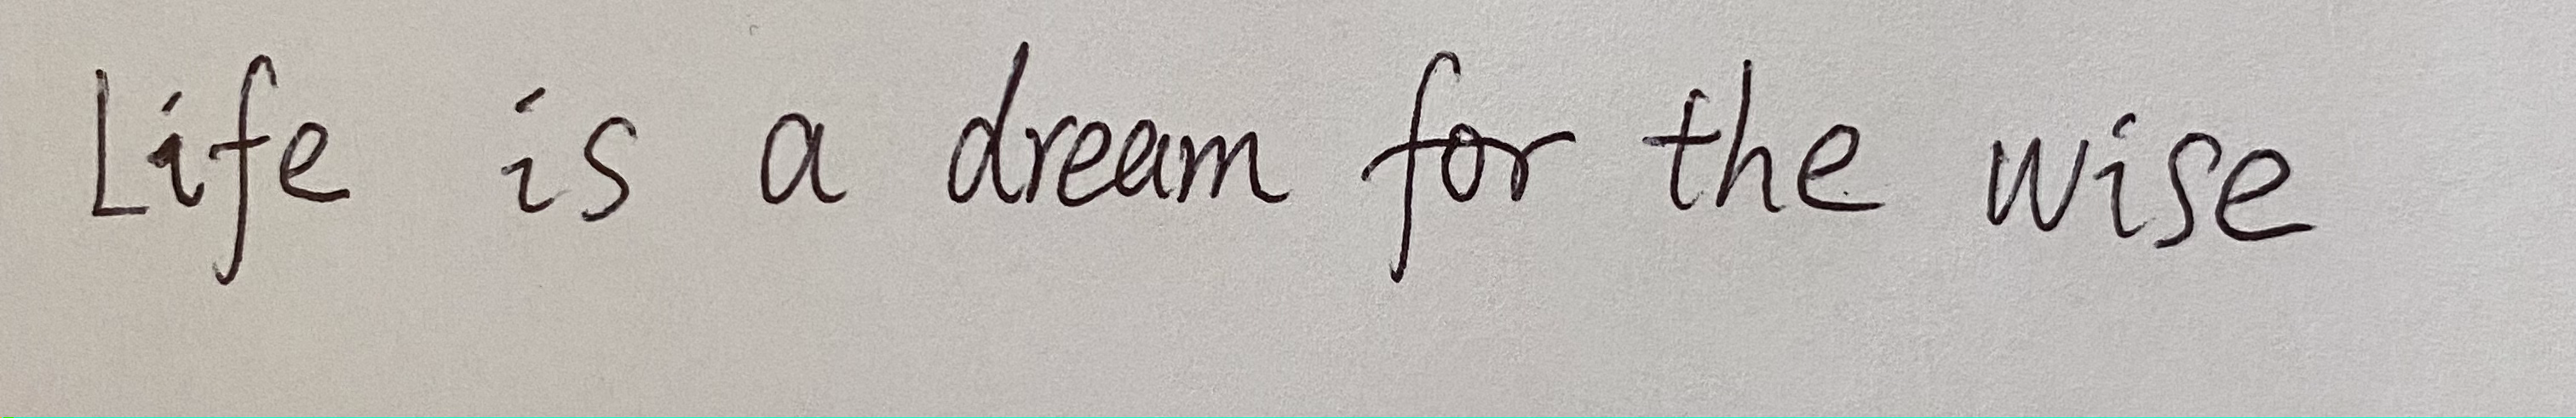 Life is a dream for the wise